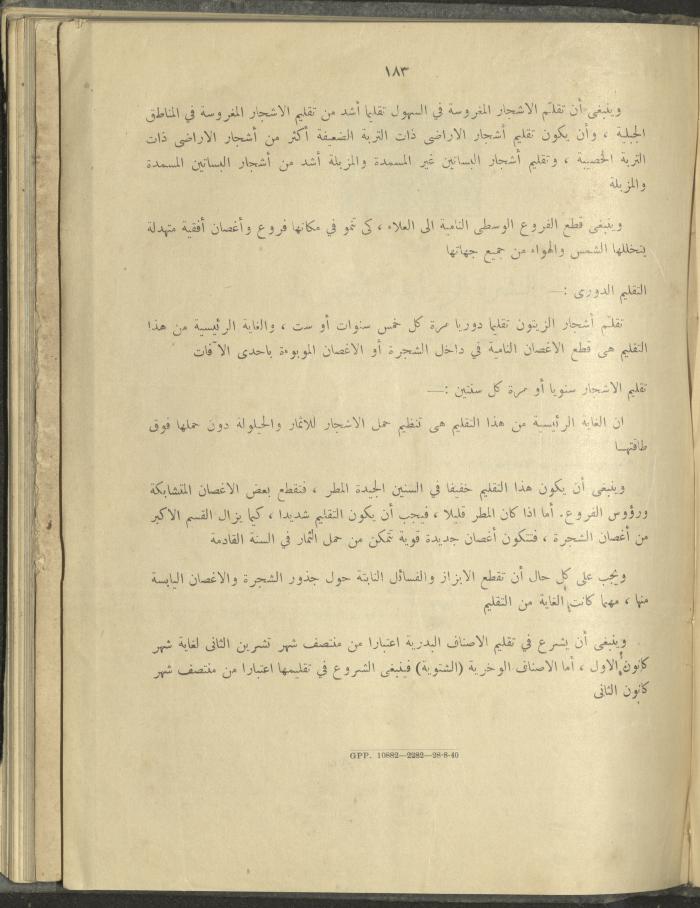 ١٨٣
وينبغى أن تقلّم الاشجار المغروسة في السهول تقليما أشد من تقليم الاشجار المغروسة في المناطق
الجبلية ، وأن يكون تقليم أشجار الاراضى ذات التربة الضعيفة أكثر من أشجار الاراضى ذات
التربة الخصيبة ، وتقليم أشجار البساتين غير المسمدة والمزبلة أشد من أشجار البساتين المسمدة
والمزبلة
وينبغى قطع الفروع الوسطى النامية الى العلاء ، كى تنمو في مكانها فروع وأغصان أفقية متهدلة
يتخللها الشمس والهواء من جميع جهاتها
التقليم الدورى :—
تقلّم أشجار الزيتون تقليما دوريا مرة كل خمس سنوات أو ست ، والغاية الرئيسية من هذا
التقليم هى قطع الاغصان النامية في داخل الشجرة أو الاغصان الموبوءة باحدى الآفات
تقليم الاشجار سنويا أو مرة كل سنتين :—
ان الغاية الرئيسية من هذا التقليم هى تنظيم حمل الاشجار للاثمار والحيلولة دون حملها فوق
طاقتهـا
وينبغى أن يكون هذا التقليم خفيفا في السنين الجيدة المطر ، فتقطع بعض الاغصان المتشابكة
ورؤوس الفروع. أما اذا كان المطر قليلا ، فيجب أن يكون التقليم شديدا ، كيما يزال القسم الاكبر
من أغصان الشجرة ، فتتكون أغصان جديدة قوية تتمكن من حمل الثمار في السنة القادمة
ويجب على كل حال أن تقطع الابزاز والفسائل النابتة حول جذور الشجرة والاغصان اليابسة
منها ، مهما كانت الغاية من التقليم
وينبغى أن يشرع في تقليم الاصناف البدرية اعتبارا من منتصف شهر تشرين الثانى لغاية شهر
كانون الاول ، أما الاصناف الوخرية (الشتوية) فينبغى الشروع في تقليمها اعتبارا من منتصف شهر
كانون الثانى
GPP. 10882—2282—28-8-40